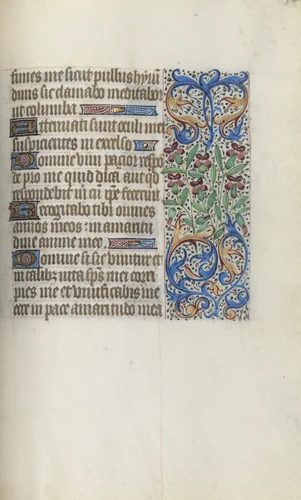 times me sicut pullus hyru͂
dinis sic clamabo meditabor
ut columba
Attenuati sunt oculi mei
suspicientes in excelso
Domine vim pacior respo͂
de pro me quid dica͂ aut q͂
respondebit m͂ cu͂ ip͂e fecerit
Recogitabo tibi omnes
annos meos: in amaritu
dine anime mee
Domine si sic vivitur et
in talibus vita sp͂us mei corri
pies me et vivificabis me
ecce in pace amaritudo mea